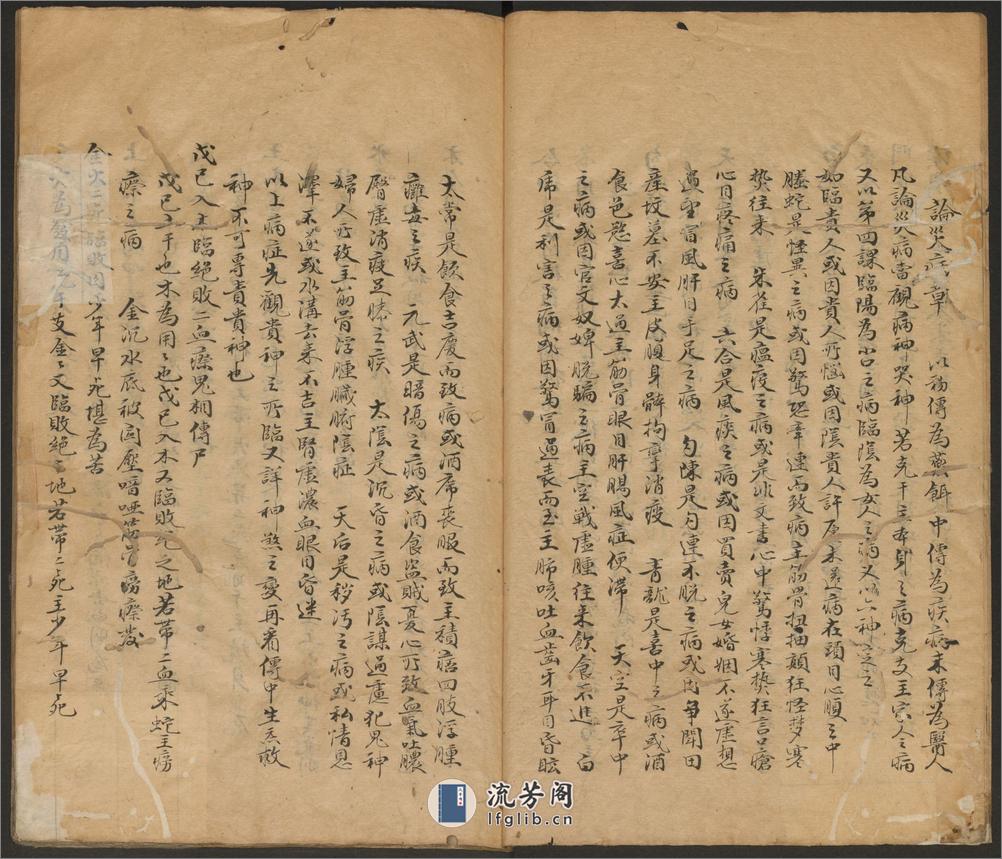 論災病章　以初傳為藥餌中傳為疾病末傳為醫人
凡論災病當觀病神哭神若克干主本身之病克支主家人之病
又以第四課臨陽為小口之病臨陰為女人之病又以六神定之
如臨貴人或因貴人所惱或因陰貴人許原未還病在頭目心腹之中
螣蛇是怪異之病或因驚恐牽連而致病主筋骨扭抽顛狂怪梦寒
熱往來　朱雀是瘟疫之病或是非文書心中驚悸寒熱狂言口瘡
心目疼痛之病　六合是風疾之病或因買賣兒女婚姻不遂虛想
過望冒風肝目手足之病　勾陳是勾連不脫之病或因爭鬪田
產坟墓不安主皮膚身體拘孿消瘦　青龍是喜中之病或酒
食色慾喜心太過主筋骨眼目肝腸風症便滯　天空是卒中
之病或因官文奴婢脫騙之病主空戦虛腫往來飲食不進　白
虎是利害之病或因驚冒過喪而至主肺咳吐血齒牙耳目昏眩
太常是飲食吉慶而致病或酒席喪服而致主積痞四肢浮腫
癰毒之疾　元武是暗傷之病或酒食盜賊憂心所致血氣吐膿
腎虛消疲足膝之疾　太陰是沉昏之病或陰謀過慮犯鬼神
婦人所致主筋骨浮腫臟腑陰症　天后是穢污之病或私情恩
澤不遂或水溝去來不吉主腎虛濃血眼目昏迷
以上病症先觀貴神之所臨又詳神煞之變再看傳中生克敢
神不可專責貴神也
戊巳入土臨絕敗二血療鬼相傳尸
戊巳二干也木為用々也戊巳入木又臨敗絕之地若帶二血乘蛇主癆
療之病　金沉水底被囚壓喑啞勞胃癆療發
金火二死臨敗因　少年早死堪為苦
火為金用也干支金々又臨敗絕之地若帶二死主少年早死
流芳阁
lfglib.cn